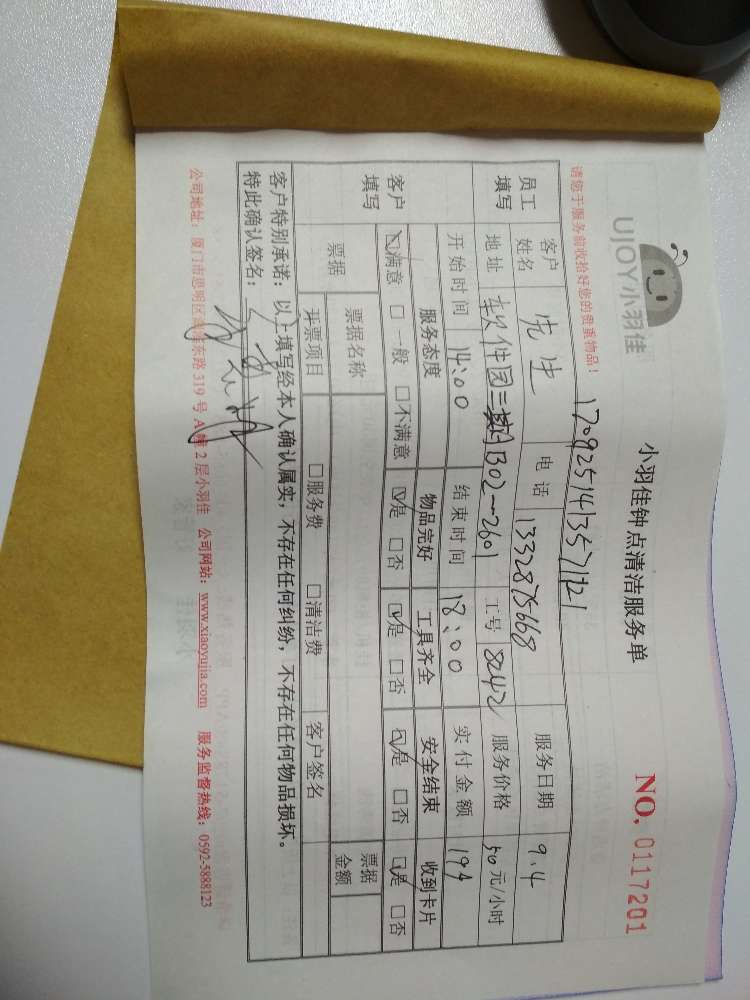 UJOY小羽佳
小羽佳钟点清洁服务单
NO. 0117201
请您于服务前收拾好您的贵重物品！
员工填写 客户姓名 先生 电话 13328875668 服务日期 9.4
地址 软件园三期B02-2601 工号 8242 服务价格 50元/小时
开始时间 14:00 结束时间 18:00 实付金额 194
客户填写 服务态度 物品完好 工具齐全 安全结束 收到卡片
☑满意 □一般 □不满意 ☑是 □否 ☑是 □否 ☑是 □否 ☑是 □否
票据 票据名称 票据金额
开票项目 □服务费 □清洁费 客户签名
客户特别承诺：以上填写经本人确认属实，不存在任何纠纷，不存在任何物品损坏。
特此确认签名：
公司地址：厦门市思明区 东路319号A幢2层小羽佳 公司网站：www.xiaoyujia.com 服务监督热线：0592-5888123